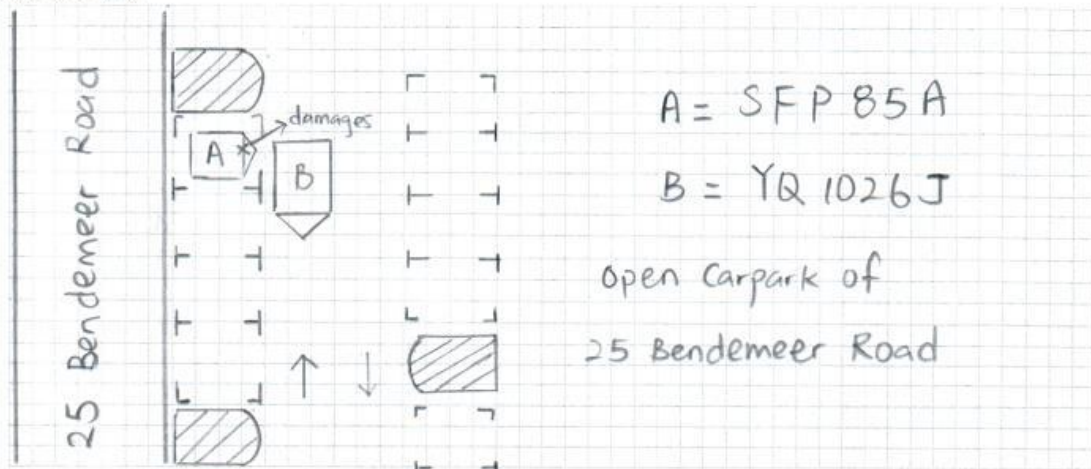 25 Bendemeer Road
damages
A
B
A = SFP 85A
B = YQ 1026J
open Carpark of
25 Bendemeer Road